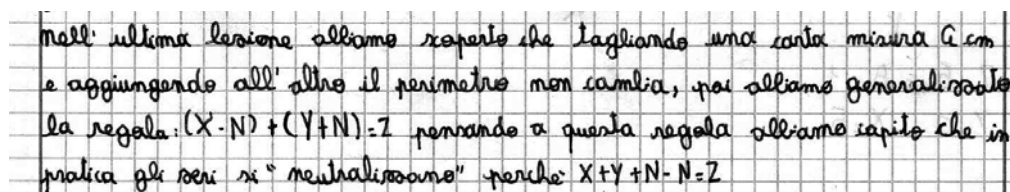 nell' ultima lezione abbiamo scoperto che tagliando una carta misura a cm
e aggiungendo all' altro il perimetro non cambia, poi abbiamo generalizzato
la regola: (X-N)+(Y+N)=Z pensando a questa regola abbiamo capito che in
pratica gli zeri si "neutralizzano" perche X+Y+N-N=Z